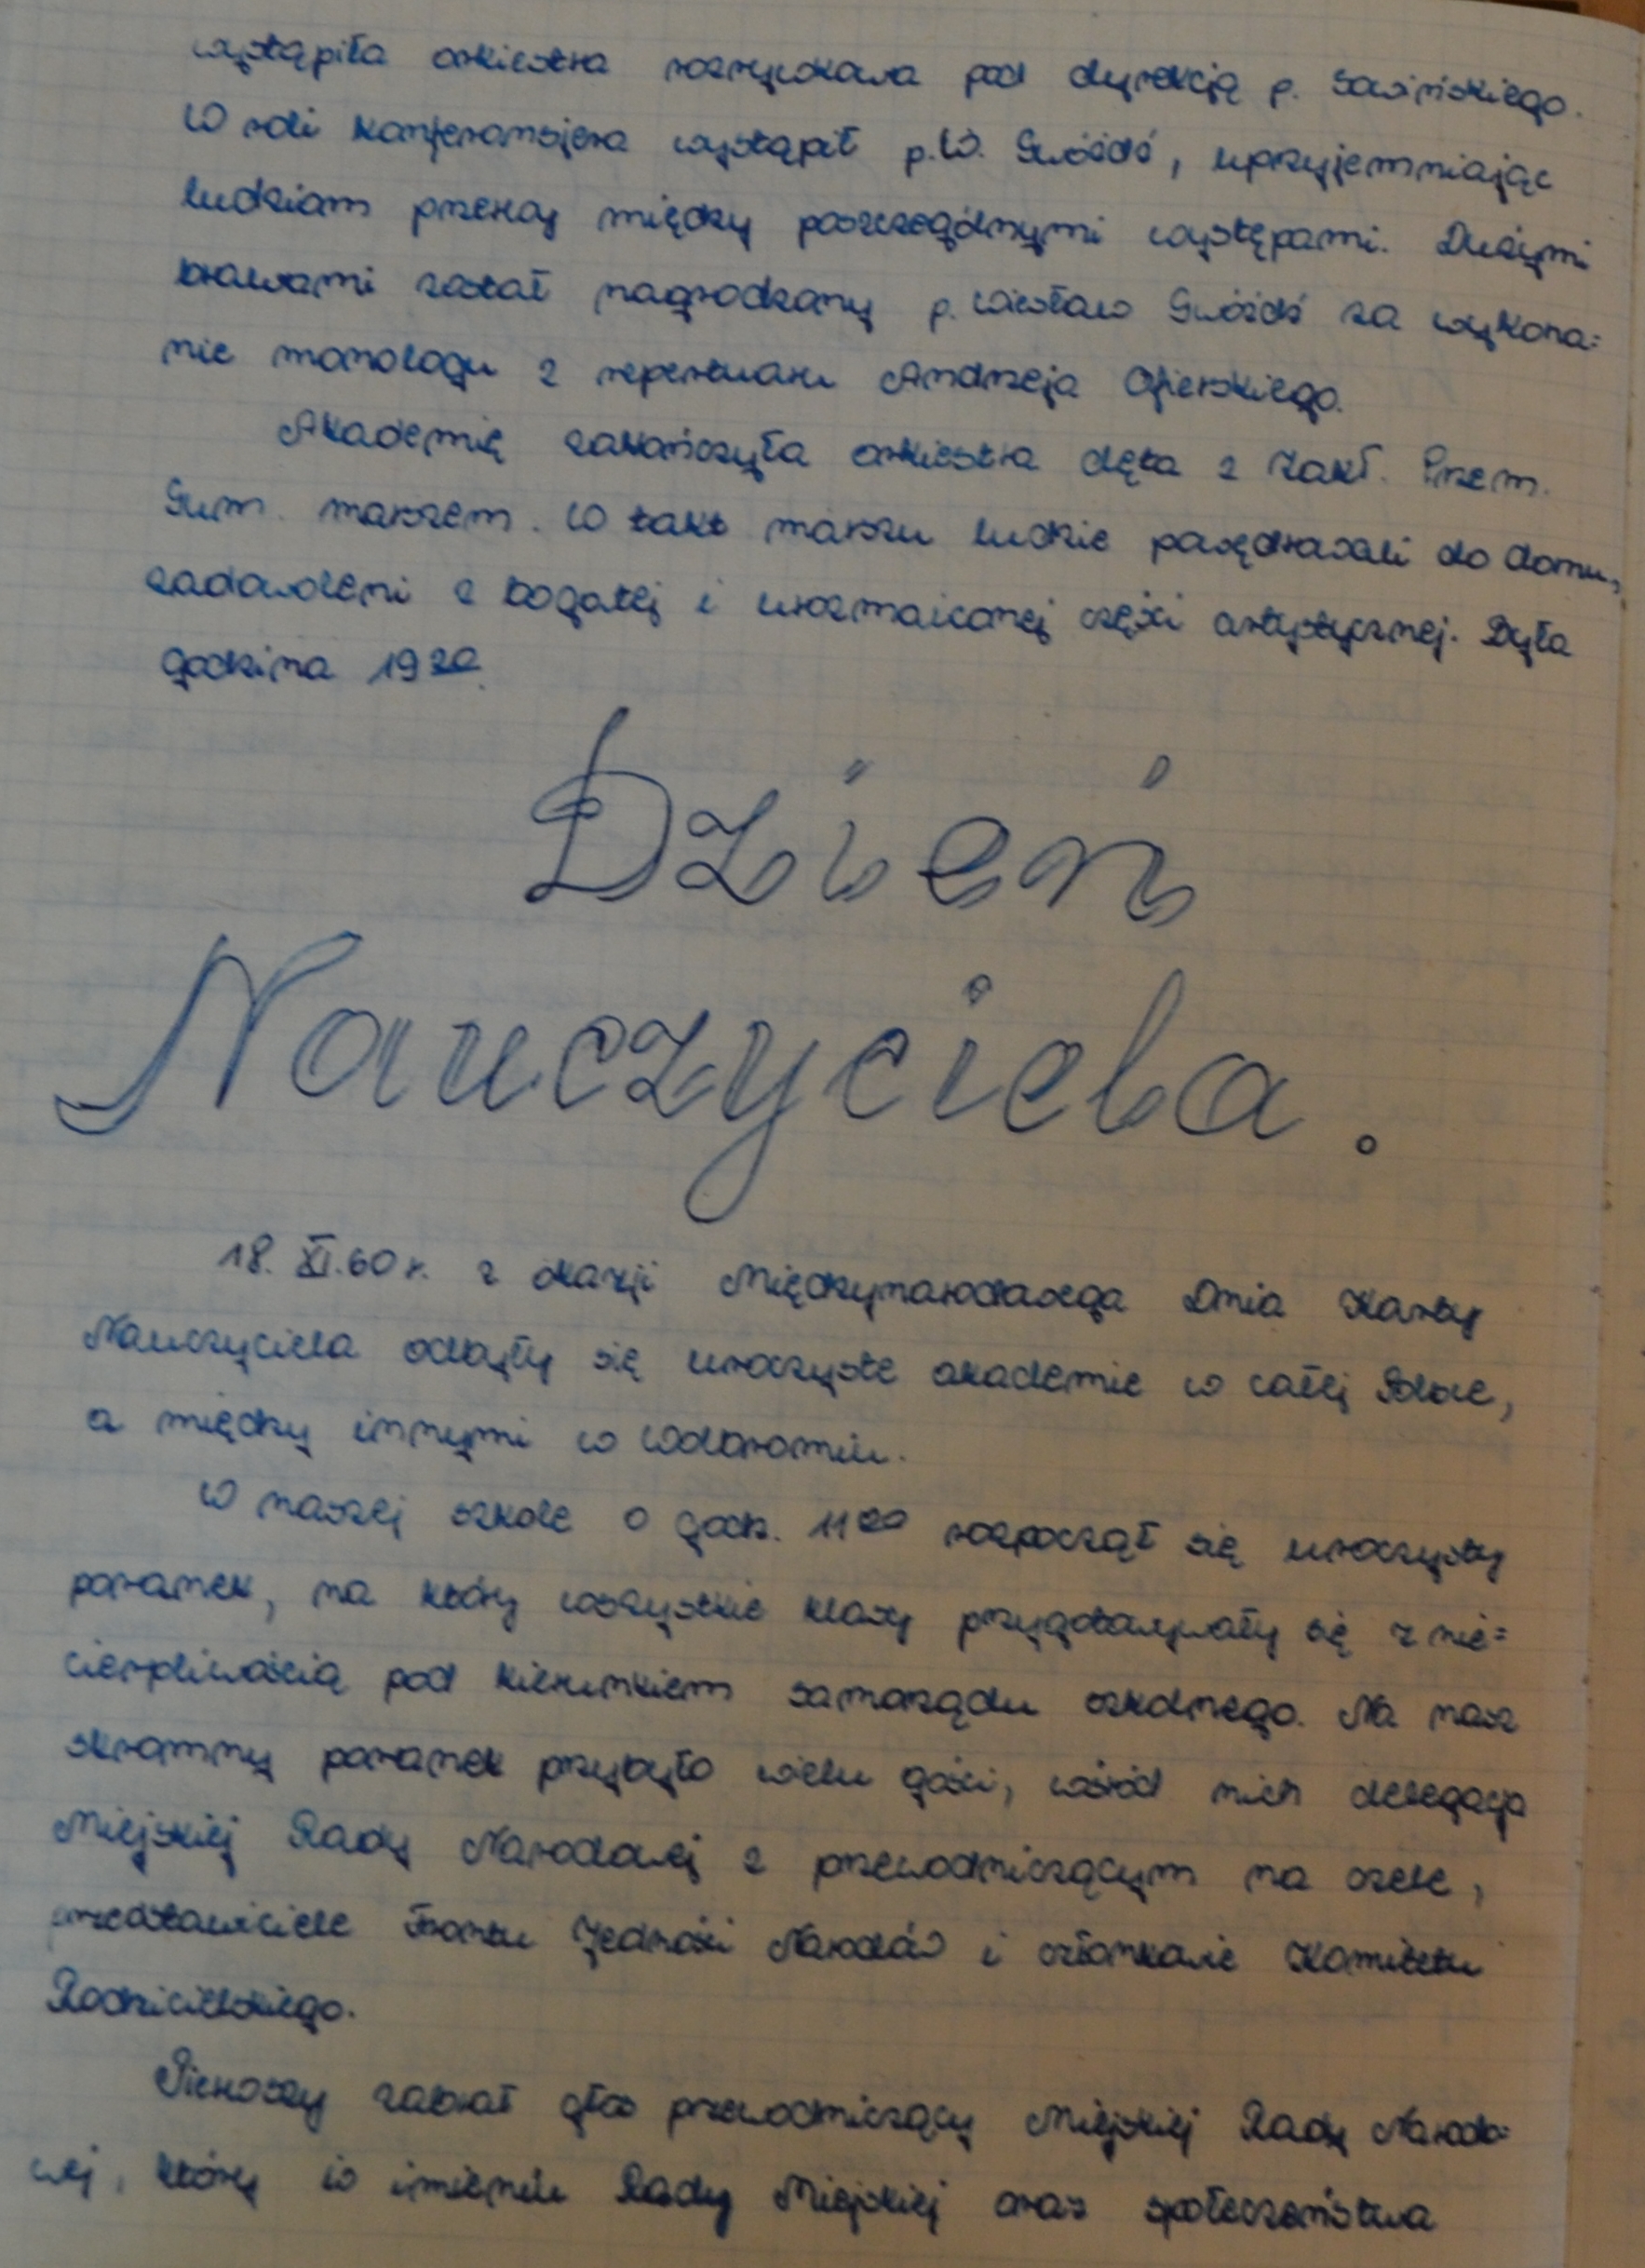 wystąpiła orkiestra rozrywkowa pod dyrekcją p. Sawińskiego.
W roli konferansjera wystąpił p. W. Gwóźdź, uprzyjemniając
ludziom przerwy między poszczególnymi występami. Dużymi
brawami został nagrodzony p. Wiesław Gwóźdź za wykona=
nie monologu z repertuaru Andrzeja Ofierskiego.
Akademię zakończyła orkiestra dęta z Zakł. Przem.
Gum. marszem. W takt marszu ludzie powędrowali do domu,
zadowoleni z bogatej i urozmaiconej części artystycznej. Była
godzina 19
Dzień
Nauczyciela.
18. XI. 60 r. z okazji Międzynarodowego Dnia Karty
Nauczyciela odbyły się uroczyste akademie w całej Polsce,
a między innymi w Wolbromiu.
W naszej szkole o godz. 11 rozpoczął się uroczysty
poranek, na który wszystkie klasy przygotowywały się z nie=
cierpliwością pod kierunkiem samorządu szkolnego. Na nasz
skromny poranek przybyło wielu gości, wśród nich delegacja
Miejskiej Rady Narodowej z przewodniczącym na czele,
przedstawiciele Frontu Jedności Narodów i członkowie Komitetu
Rodzicielskiego.
Pierwszy zabrał głos przewodniczący Miejskiej Rady Narodo=
wej, który w imieniu Rady Miejskiej oraz społeczeństwa